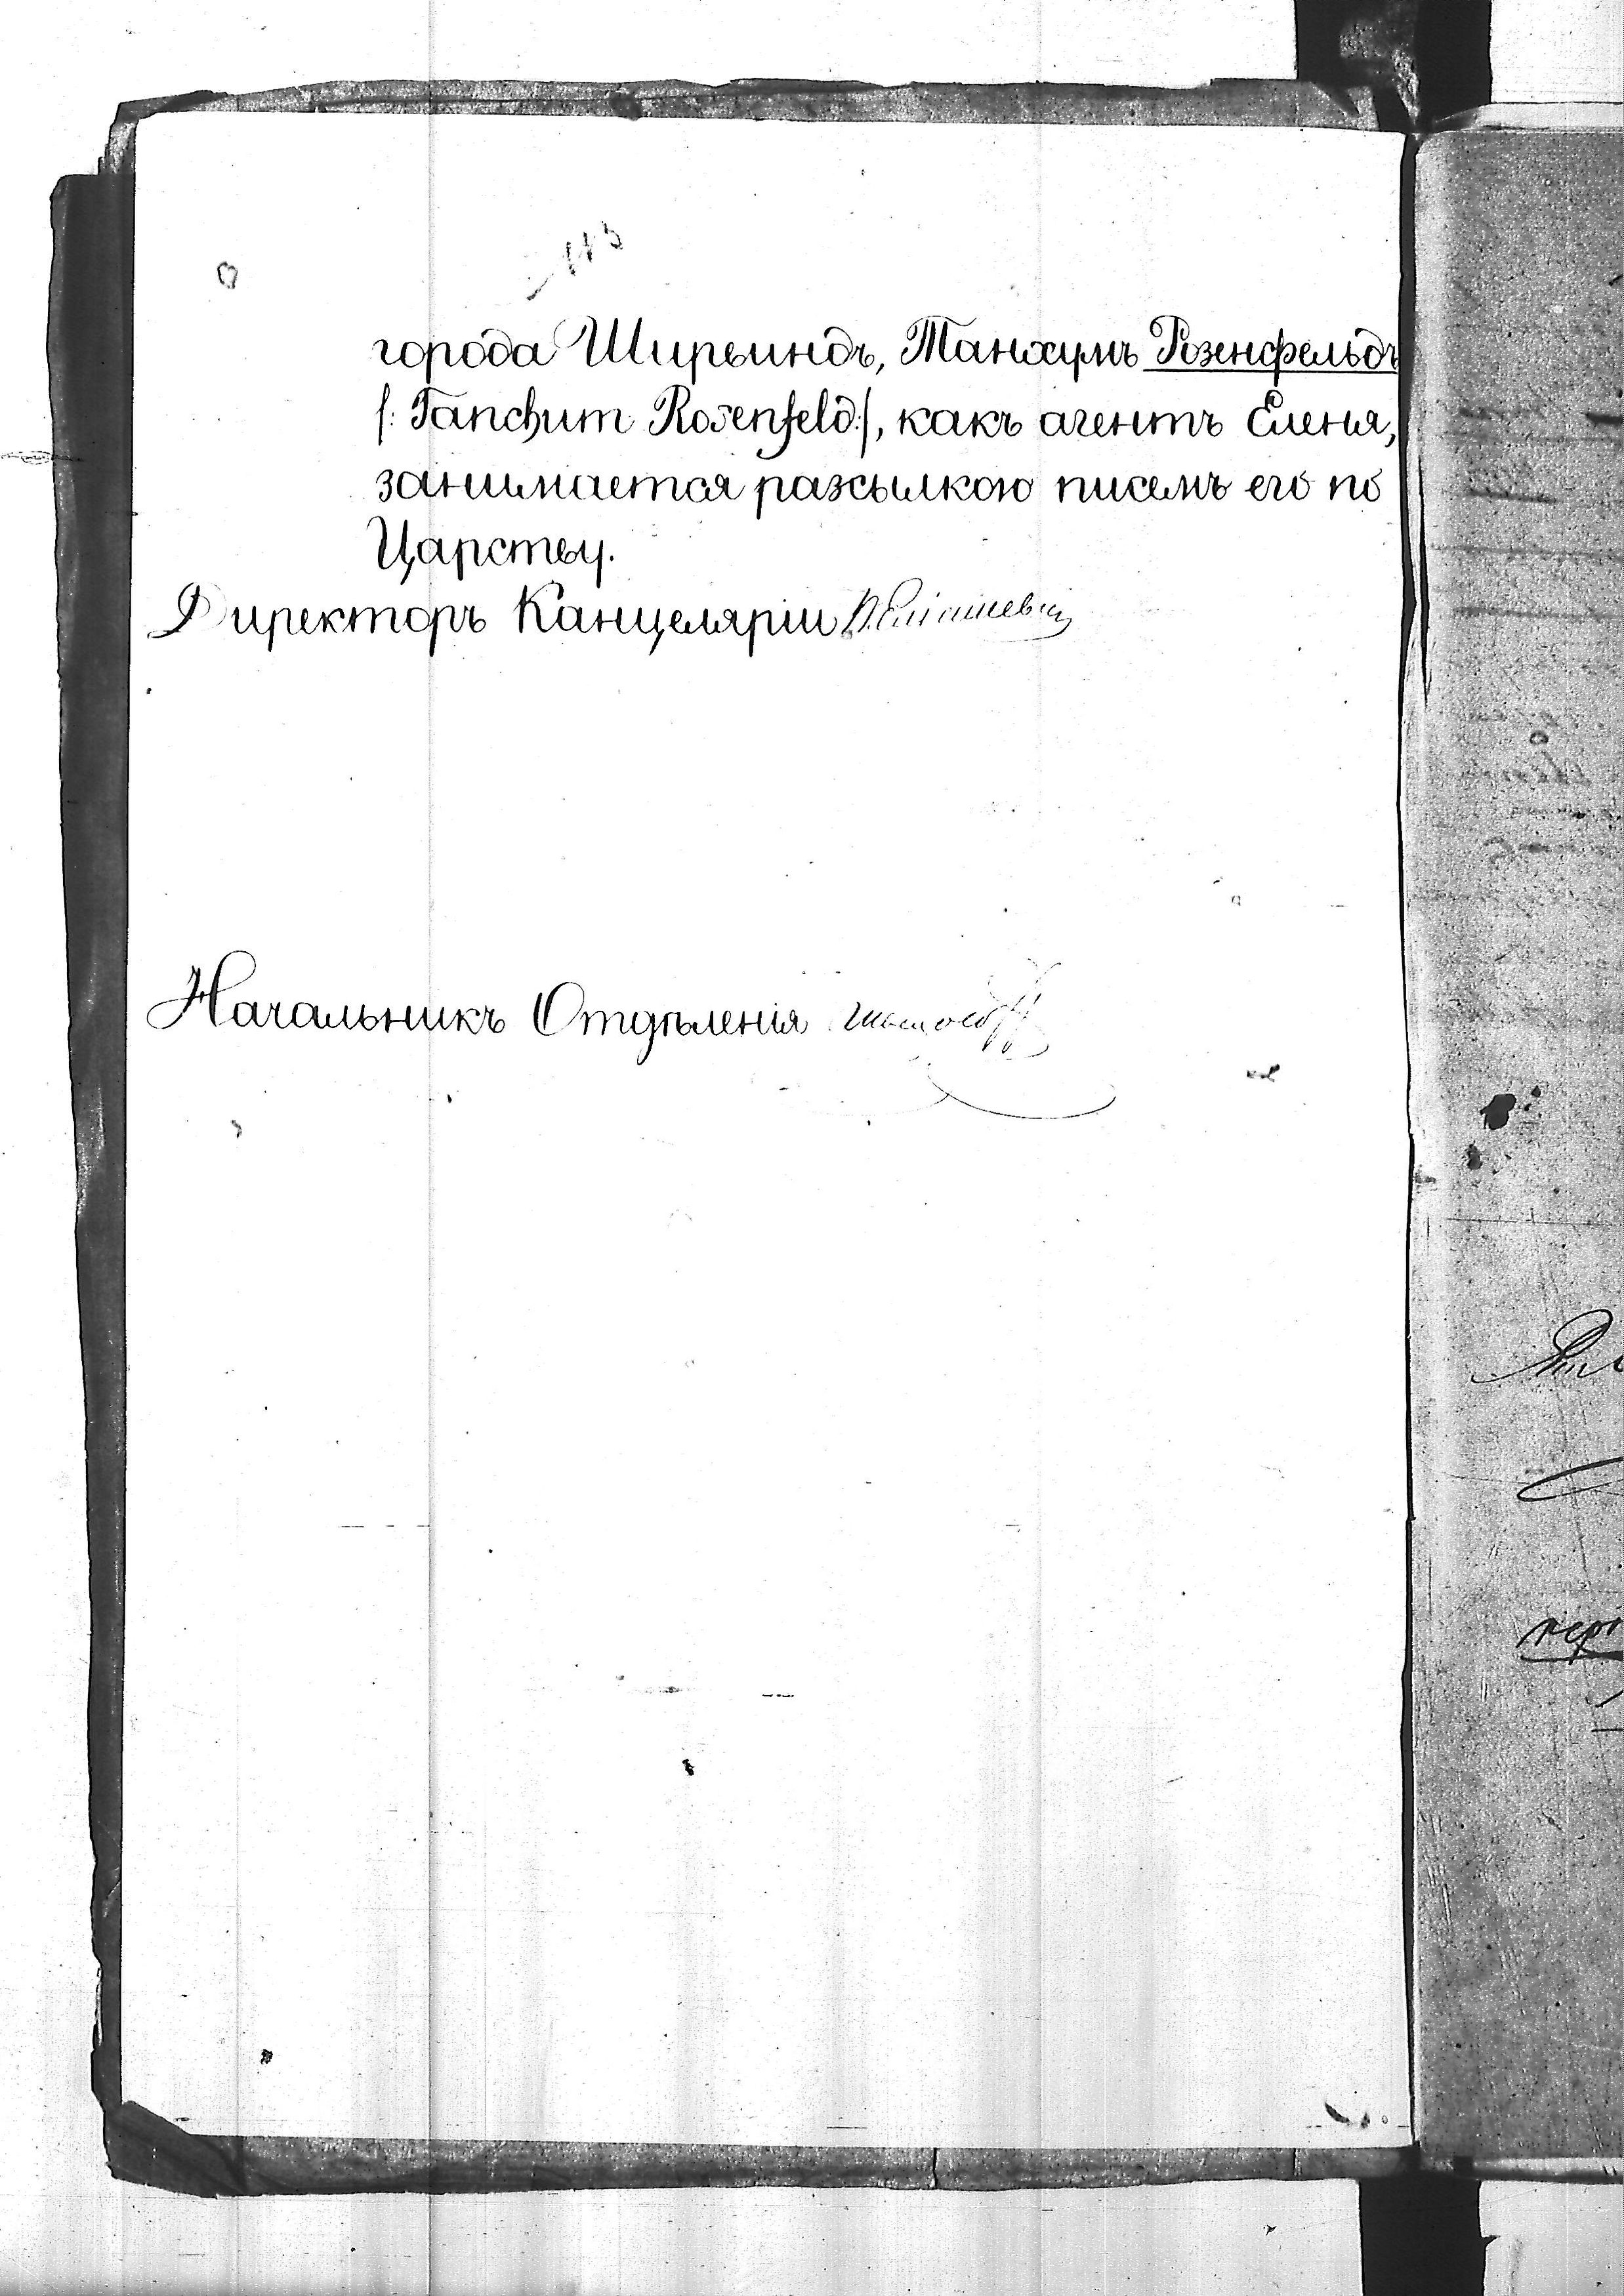 города Ширвиндъ, Танхумъ Розенфельдъ
/: Tanchum Rosenfeld :/, какъ агентъ Еленя,
занимается разсылкою писемъ его по
Царству.
Директоръ Канцеляріи
Начальникъ Отдѣленія